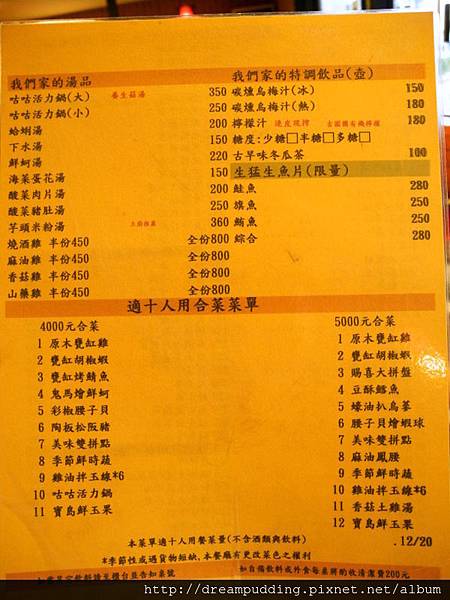 我們家的湯品
咕咕活力鍋(大) 養生菇湯 350
咕咕活力鍋(小) 250
蛤蜊湯 200
下水湯 150
鮮蚵湯 220
海菜蛋花湯 150
酸菜肉片湯 200
酸菜豬肚湯 250
芋頭米粉湯 360
燒酒雞 半份450 全份800
麻油雞 半份450 全份800
香菇雞 半份450 全份800
山藥雞 半份450 全份800
我們家的特調飲品(壺)
碳燻烏梅汁(冰) 150
碳燻烏梅汁(熱) 180
檸檬汁 連皮現榨 180
糖度:少糖□半糖□多糖□
古早味冬瓜茶 100
生猛生魚片(限量)
鮭魚 280
旗魚 250
鮪魚 250
綜合 280
適十人用合菜菜單
4000元合菜
1 原木甕缸雞
2 甕缸胡椒蝦
3 甕缸烤鯖魚
4 鬼馬燴鮮蚵
5 彩椒腰子貝
6 陶板松阪豬
7 美味雙拼點
8 季節鮮時蔬
9 雞油拌玉線*6
10 咕咕活力鍋
11 寶島鮮玉果
5000元合菜
1 原木甕缸雞
2 甕缸胡椒蝦
3 賜喜大拼盤
4 豆酥鱈魚
5 蠔油扒烏蔘
6 腰子貝燴蝦球
7 美味雙拼點
8 麻油鳳腰
9 季節鮮時蔬
10 雞油拌玉線*6
11 香菇土雞湯
12 寶島鮮玉果
本菜單適十人用餐菜量(不含酒類與飲料)
.12/20
*季節性或遇貨物短缺,本餐廳有更改菜色之權利
如自備飲料或外食每桌將酌收清潔費200元
http://dreampudding.pixnet.net/album